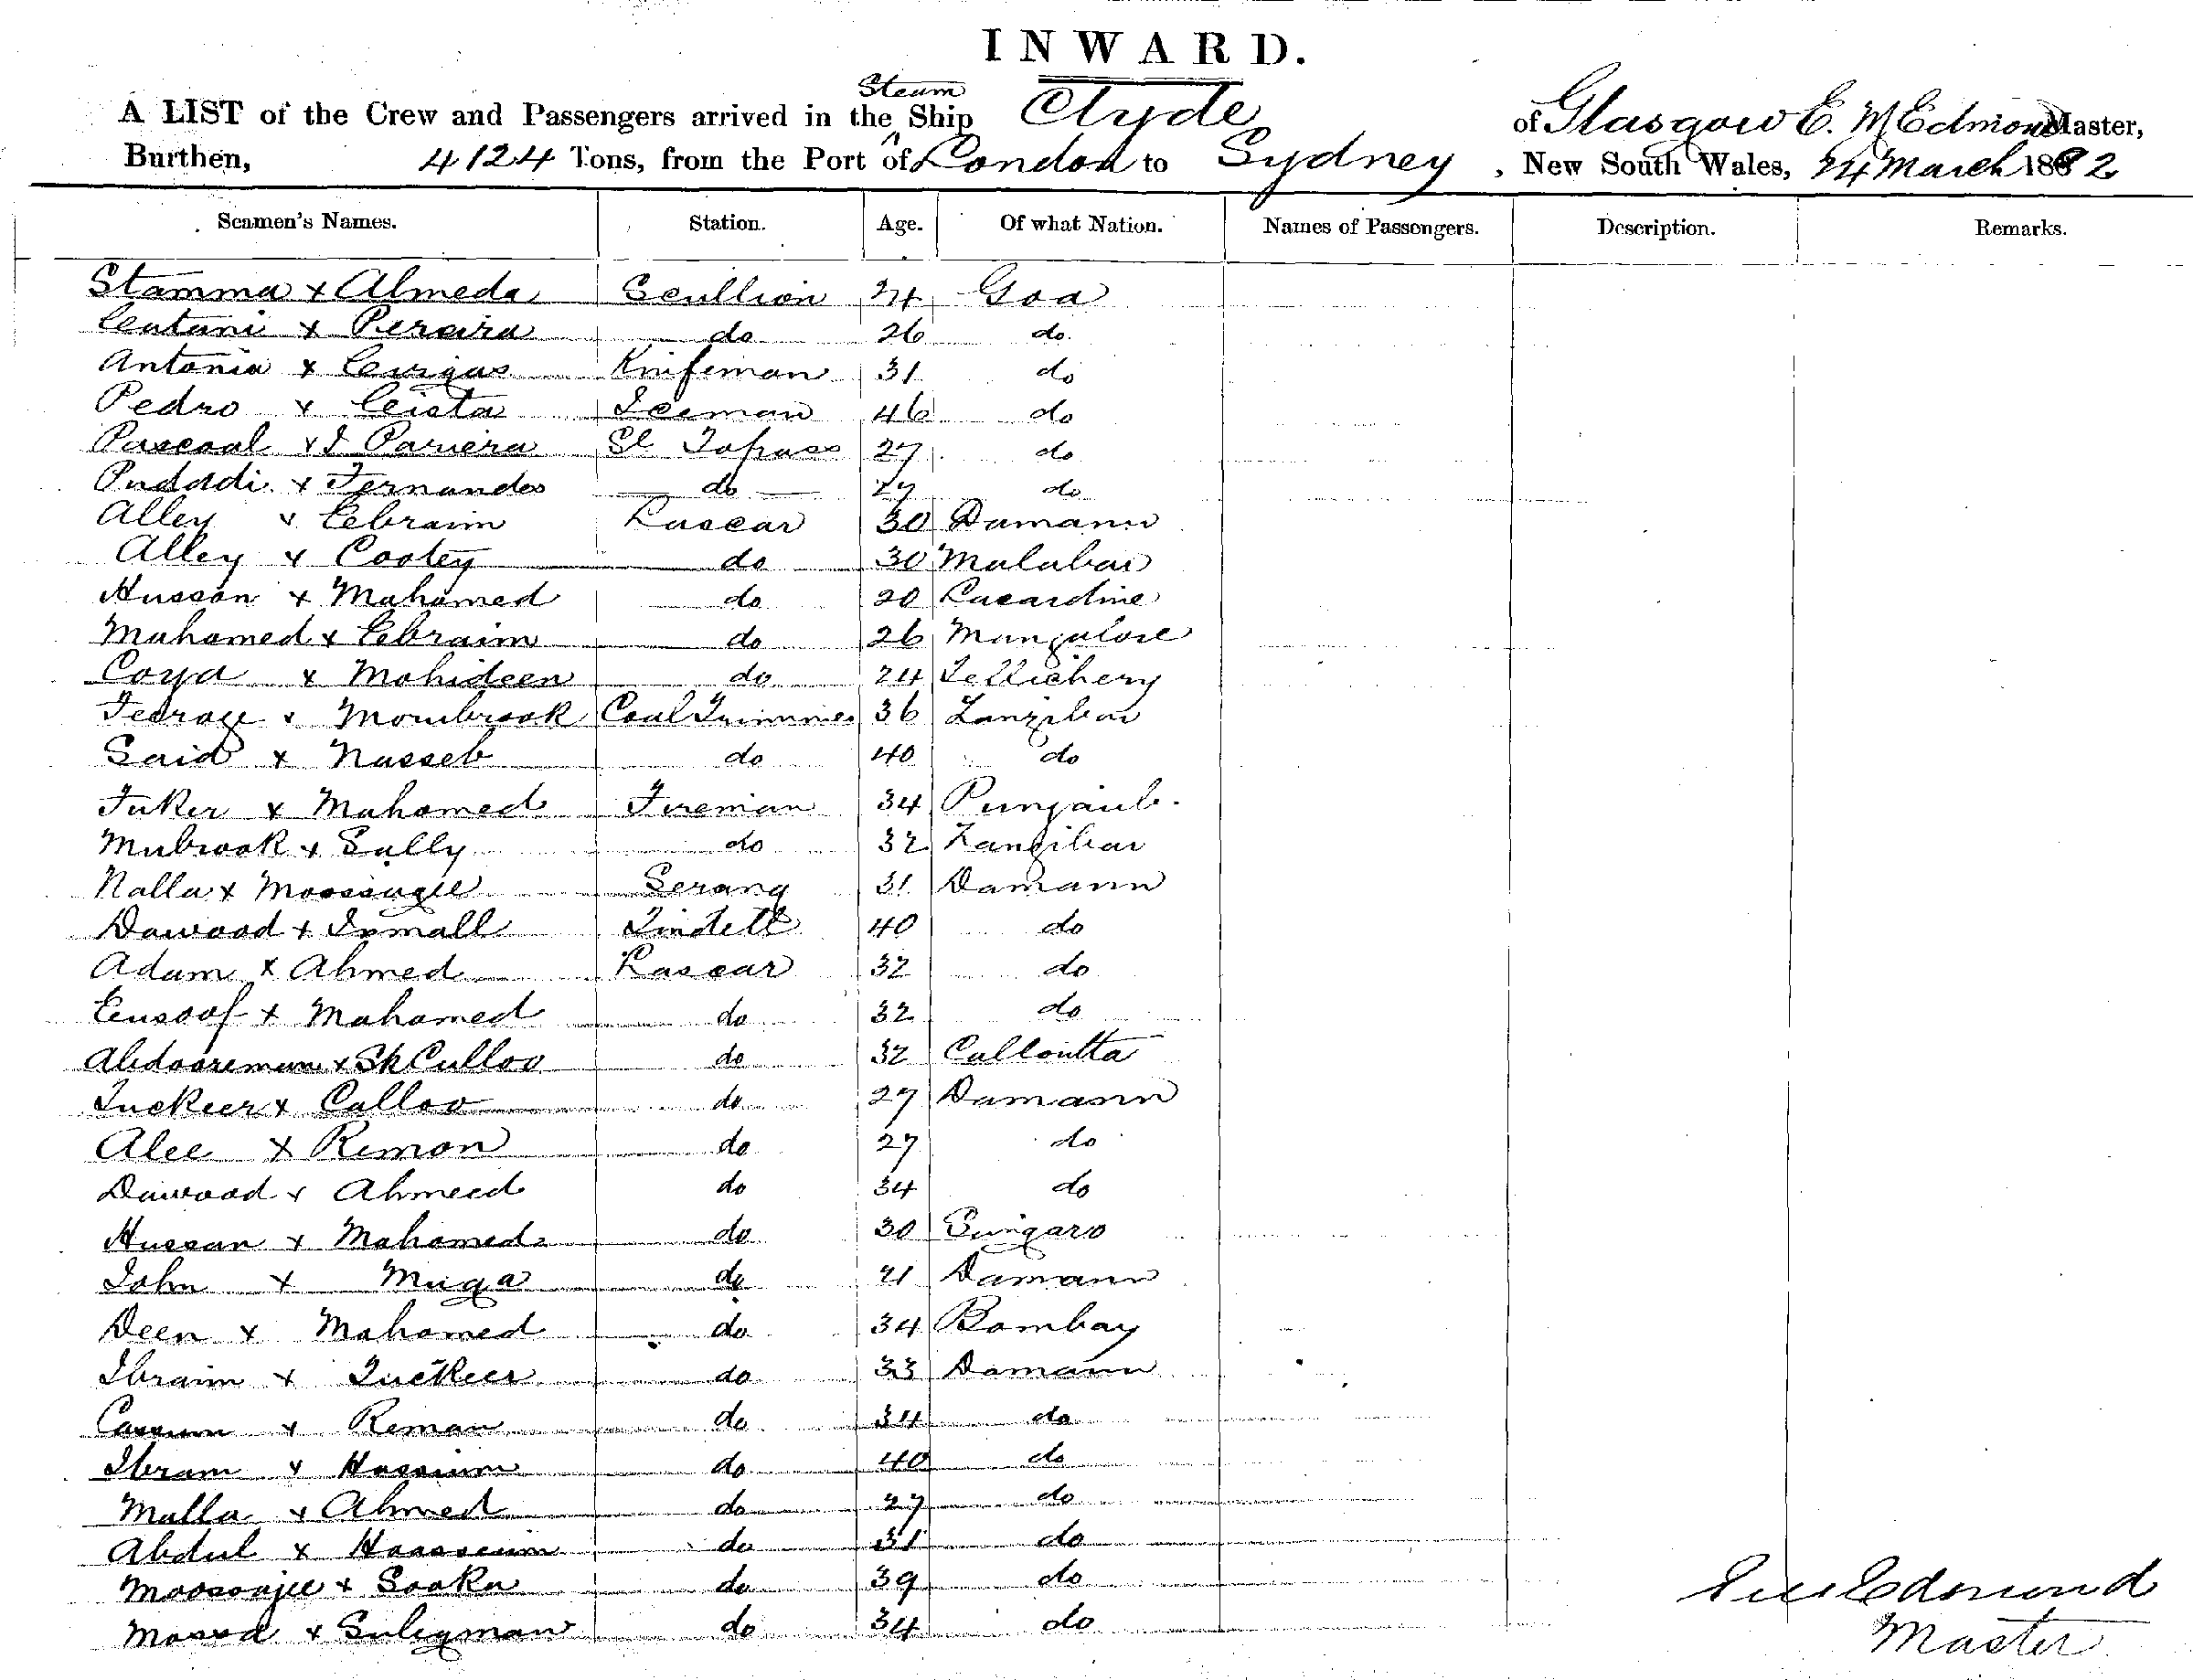 INWARD.
A LIST of the Crew and Passengers arrived in the Steam Ship Clyde of Glasgow E. M. Edmond Master,
Burthen, 4124 Tons, from the Port of London to Sydney, New South Wales, 24 March 1882
Seamen's Names. Station. Age. Of what Nation. Names of Passengers. Description. Remarks.
Stamma x Almeda Scullion 24 Goa
x Pereira do 26 do
Antonia x Knifeman 31 do
Pedro x Iceman 46 do
Pascoal x Sl Topass 27 do
x Fernandes do 27 do
Alley x Eebraim Lascar 30 Damann
Alley x Cootey do 30 Malabar
Hussan x Mahomed do 20 Lacardine
Mahomed x Eebraim do 26 Mangalore
Coya x Mohideen do 24 Tellichery
x Mombrook Coal Trimmer 36 Zanzibar
Said x Nasseb do 40 do
Fuker x Mahomed Fireman 34 Punjaub.
Mubrook x Sally do 32 Zanzibar
Nalla x Moosaugee Serang 31 Damann
Dawood x Ismall Tindell 40 do
Adam x Ahmed Lascar 32 do
Eusoof x Mahomed do 32 do
Abdooreman x Sk Culloo do 32 Calloutta
Tuckeer x Calloo do 27 Damann
Alee x Remon do 27 do
Dawood x Ahmeed do 34 do
Hussan x Mahomed do 30 Gungaro
John x Muga do 21 Damann
Deen x Mahomed do 34 Bombay
Ibraim x Tuckeer do 33 Damann
Cassum x Reman do 34 do
Ibram x Hassium do 40 do
Malla x Ahmed do 27 do
Abdul x Hoosseum do 31 do
Moosoujee x Sooka do 39 do
Moosa x Suleyman do 34 do
Edmond
Master